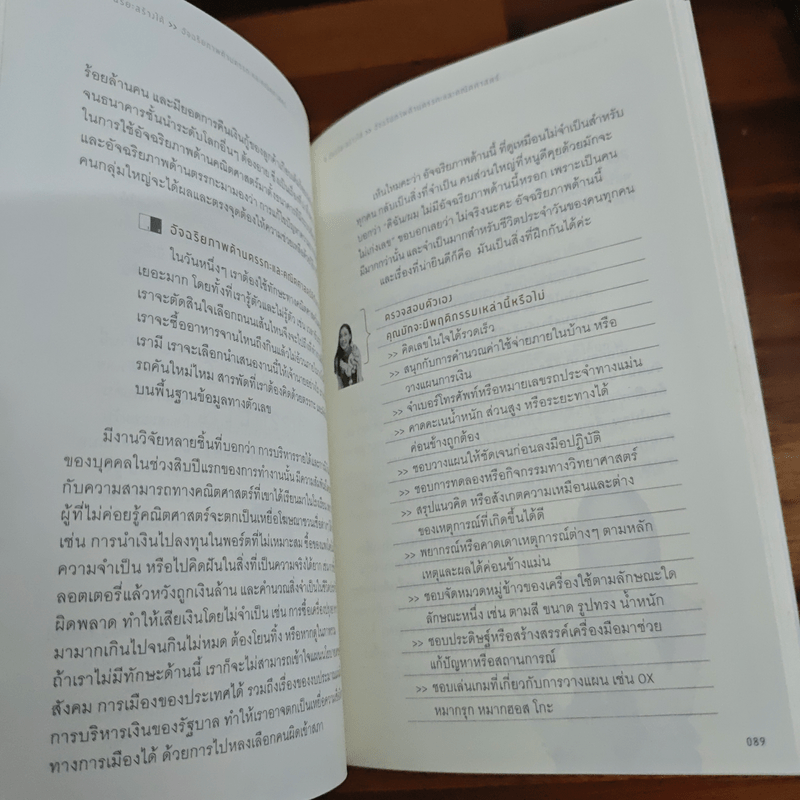 ร้อยล้านคน และมียอดการคืนเงินกู้ของลูกค้า
จนธนาคารชั้นนำระดับโลกอื่นๆ ต้องอาย
ในการใช้อัจฉริยภาพด้านคณิตศาสตร์มา
และอัจฉริยภาพด้านตรรกะมามองว่า
คนกลุ่มใหญ่จะได้ผลและตรงจุดต้องให้ความช่วยเหลือ
อัจฉริยภาพด้านตรรกะและคณิตศาสตร์
ในวันหนึ่งๆ เราต้องใช้ทักษะทางคณิตศาสตร์
เยอะมาก โดยทั้งที่เรารู้ตัวและไม่รู้ตัว เช่น
เราจะตัดสินใจเลือกถนนเส้นไหนจึงจะไปถึง
เราจะซื้ออาหารจานไหนถึงกินแล้วไม่อ้วน
เรามี เราจะเลือกนำเสนองานนี้ให้เจ้านายอย่างไร
รถคันไหนใหม่ สารพัดที่เราต้องคิดด้วยตรรกะ
บนพื้นฐานข้อมูลทางตัวเลข
มีงานวิจัยหลายชิ้นที่บอกว่า การบริหารรายได้และ
ของบุคคลในช่วงสิบปีแรกของการทำงานนั้น มีความสัมพันธ์
กับความสามารถทางคณิตศาสตร์ที่เขาได้เรียนมาในโรงเรียน
ผู้ที่ไม่ค่อยรู้คณิตศาสตร์จะตกเป็นเหยื่อโฆษณาชวนเชื่อ
เช่น การนำเงินไปลงทุนในพอร์ตที่ไม่เหมาะสม ซื้อของ
ความจำเป็น หรือไปคิดฝันในสิ่งที่เป็นความจริงได้ยาก เช่น
ลอตเตอรี่แล้วหวังถูกเงินล้าน และคำนวณสิ่งจำเป็นในชีวิต
ผิดพลาด ทำให้เสียเงินโดยไม่จำเป็น เช่น การซื้อเครื่องปรุง
มามากเกินไปจนกินไม่หมด ต้องโยนทิ้ง หรือหากดูในภาพ
ถ้าเราไม่มีทักษะด้านนี้ เราก็จะไม่สามารถเข้าใจแผนนโยบาย
สังคม การเมืองของประเทศได้ รวมถึงเรื่องของงบประมาณ
การบริหารเงินของรัฐบาล ทำให้เราอาจตกเป็นเหยื่อความ
ทางการเมืองได้ ด้วยการไปหลงเลือกคนผิดเข้าสภา
เห็นไหมคะว่า อัจฉริยภาพด้านนี้ ที่ดูเหมือนไม่จำเป็นสำหรับ
ทุกคน กลับเป็นสิ่งที่จำเป็น คนส่วนใหญ่ที่หนูดีคุยด้วยมักจะ
บอกว่า "ดิฉัน/ผม ไม่มีอัจฉริยภาพด้านนี้หรอก เพราะเป็นคน
ไม่เก่งเลข" ขอบอกเลยว่า ไม่จริงนะคะ อัจฉริยภาพด้านนี้
มีมากกว่านั้น และจำเป็นมากสำหรับชีวิตประจำวันของคนทุกคน
และเรื่องที่น่ายินดีก็คือ มันเป็นสิ่งที่ฝึกกันได้ค่ะ
ตรวจสอบตัวเอง
คุณมักจะมีพฤติกรรมเหล่านี้หรือไม่
>> คิดเลขในใจได้รวดเร็ว
>> สนุกกับการคำนวณค่าใช้จ่ายภายในบ้าน หรือ
วางแผนการเงิน
>> จำเบอร์โทรศัพท์หรือหมายเลขรถประจำทางแม่น
>> คาดคะเนน้ำหนัก ส่วนสูง หรือระยะทางได้
ค่อนข้างถูกต้อง
>> ชอบวางแผนให้ชัดเจนก่อนลงมือปฏิบัติ
>> ชอบการทดลองหรือกิจกรรมทางวิทยาศาสตร์
>> สรุปแนวคิด หรือสังเกตความเหมือนและต่าง
ของเหตุการณ์ที่เกิดขึ้นได้ดี
>> พยากรณ์หรือคาดเดาเหตุการณ์ต่างๆ ตามหลัก
เหตุและผลได้ค่อนข้างแม่น
>> ชอบจัดหมวดหมู่ข้าวของเครื่องใช้ตามลักษณะใด
ลักษณะหนึ่ง เช่น ตามสี ขนาด รูปทรง น้ำหนัก
>> ชอบประดิษฐ์หรือสร้างสรรค์เครื่องมือมาช่วย
แก้ปัญหาหรือสถานการณ์
>> ชอบเล่นเกมที่เกี่ยวกับการวางแผน เช่น OX
หมากรุก หมากฮอส โกะ
089